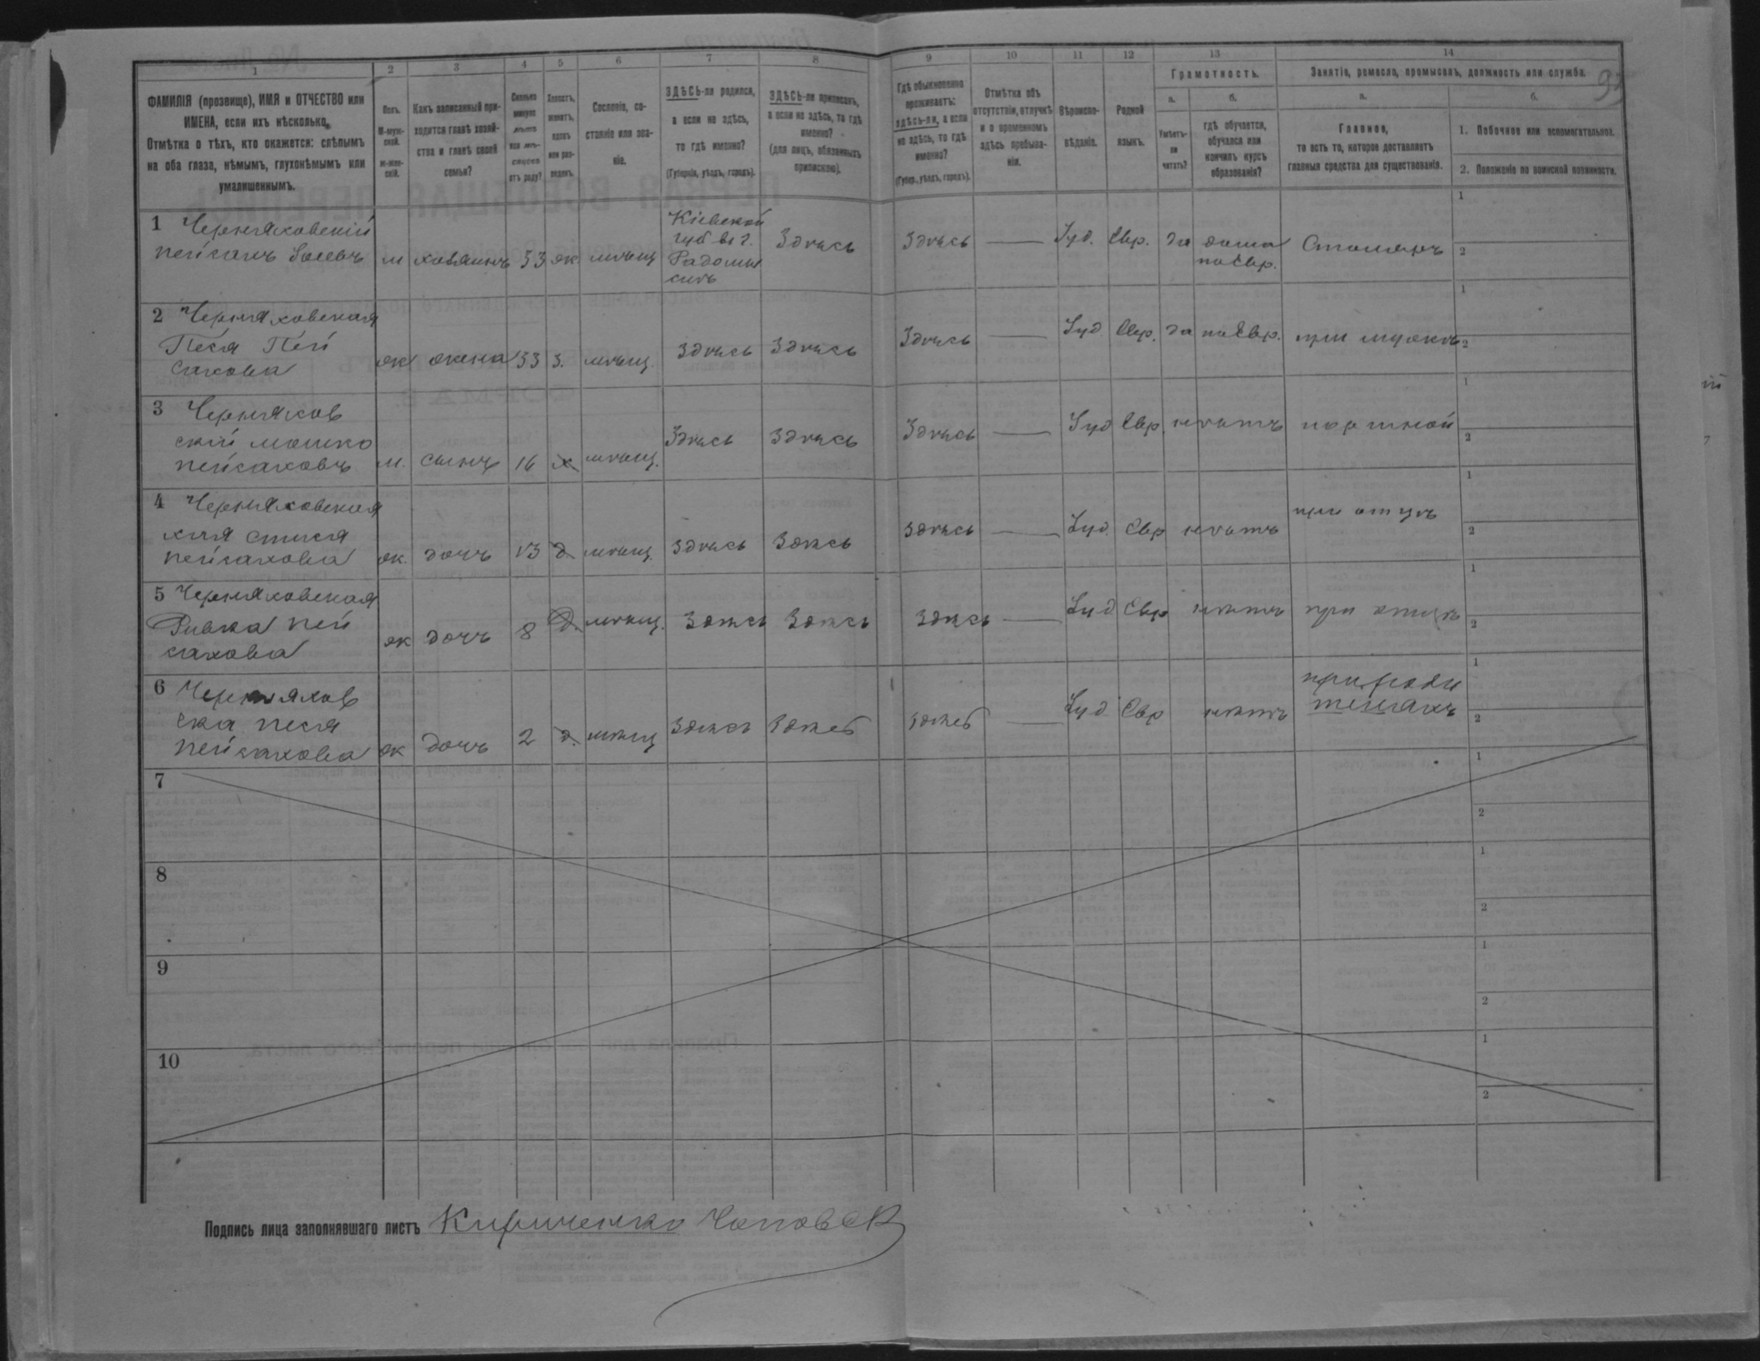 1 2 3 4 5 6 7 8 9 10 11 12 13 14
ФАМИЛІЯ (прозвище), ИМЯ и ОТЧЕСТВО или
ИМЕНА, если ихъ нѣсколько.
Отмѣтка о тѣхъ, кто окажется: слѣпымъ
на оба глаза, нѣмымъ, глухонѣмымъ или
умалишеннымъ.
Полъ.
М-муж-
ской.
Ж-жен-
скій.
Какъ записанный при-
ходится главѣ хозяй-
ства и главѣ своей
семьи?
Сословіе, со-
стояніе или зва-
ніе.
ЗДѢСЬ-ли родился,
а если не здѣсь,
то гдѣ именно?
(Губернія, уѣздъ, городъ).
ЗДѢСЬ-ли приписанъ,
а если не здѣсь, то гдѣ
именно?
(для лицъ, обязанныхъ
припискою).
Гдѣ обыкновенно
проживаетъ:
здѣсь-ли, а если
не здѣсь, то гдѣ
именно?
(Губер., уѣздъ, городъ).
Отмѣтка объ
отсутствіи, отлучкѣ
и о временномъ
здѣсь пребыва-
ніи.
Вѣроиспо-
вѣданіе.
Родной
языкъ.
Грамотность.
а. б.
Умѣетъ-
ли
читать?
гдѣ обучается,
обучался или
кончилъ курсъ
образованія?
Занятіе, ремесло, промыселъ, должность или служба.
а. б.
Главное,
то есть то, которое доставляетъ
главныя средства для существованія.
1. Побочное или вспомогательное.
2. Положеніе по воинской повинности.
1 Черняховскій
м хозяинъ 53 ж мѣщ
Кіевской
губ въ г.
Радомы
слѣ
Здѣсь Здѣсь — Іуд. Евр. да дома
по Евр.
Столяръ 1 2
2 Черняховская
Песя Пей
сахова ж жена 53 з. мѣщ. Здѣсь Здѣсь Здѣсь — Іуд Евр. да по Евр. при мужѣ 1 2
3 Черняхов
скій Мошко
Пейсаховъ м. сынъ 16 х мѣщ. Здѣсь Здѣсь Здѣсь — Іуд Евр. нѣтъ портной 1 2
4 Черняховская
Пейсахова ж. дочь 13 д мѣщ. Здѣсь Здѣсь Здѣсь — Іуд. Евр нѣтъ при отцѣ 1 2
5 Черняховская
Ривка Пей
сахова ж дочь 8 д. мѣщ. Здѣсь Здѣсь Здѣсь — Іуд Евр нѣтъ при отцѣ 1 2
6 Черняхов
ска Песя
Пейсахова ж дочь 2 д. мѣщ Здѣсь Здѣсь Здѣсь — Іуд Евр нѣтъ при роди
теляхъ 1 2
7 1 2
8 1 2
9 1 2
10 1 2
Подпись лица заполнявшаго листъ Кириченко